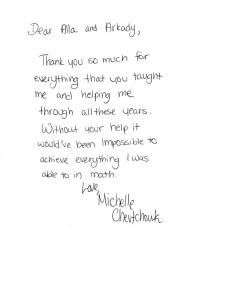 Dear Alla and Arkady,
Thank you so much for
everything that you taught
me and helping me
through all these years.
Without your help it
would've been impossible to
achieve everything I was
able to in math.
Love,
Michelle